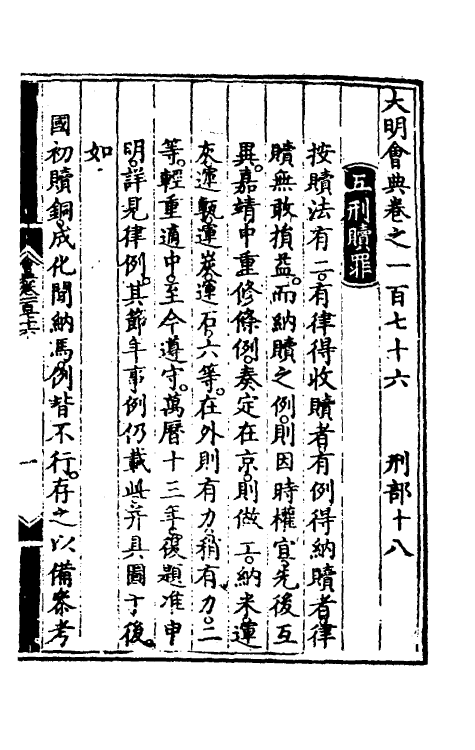 大明會典卷之一百七十六 刑部十八
五刑贖罪
按贖法有二。有律得收贖者。有例得納贖者。律
贖無敢損益。而納贖之例。則因時權宜。先後互
異。嘉靖中重修條例。奏定在京。則做工。納米。運
灰。運甎。運炭。運石。六等。在外則有力。稍有力。二
等。輕重適中。至今遵守。萬曆十三年。復題准申
明。詳見律例。其節年事例仍載此。并具圖于後。
如
國初贖銅。成化間納馬。例皆不行。存之以備參考
一